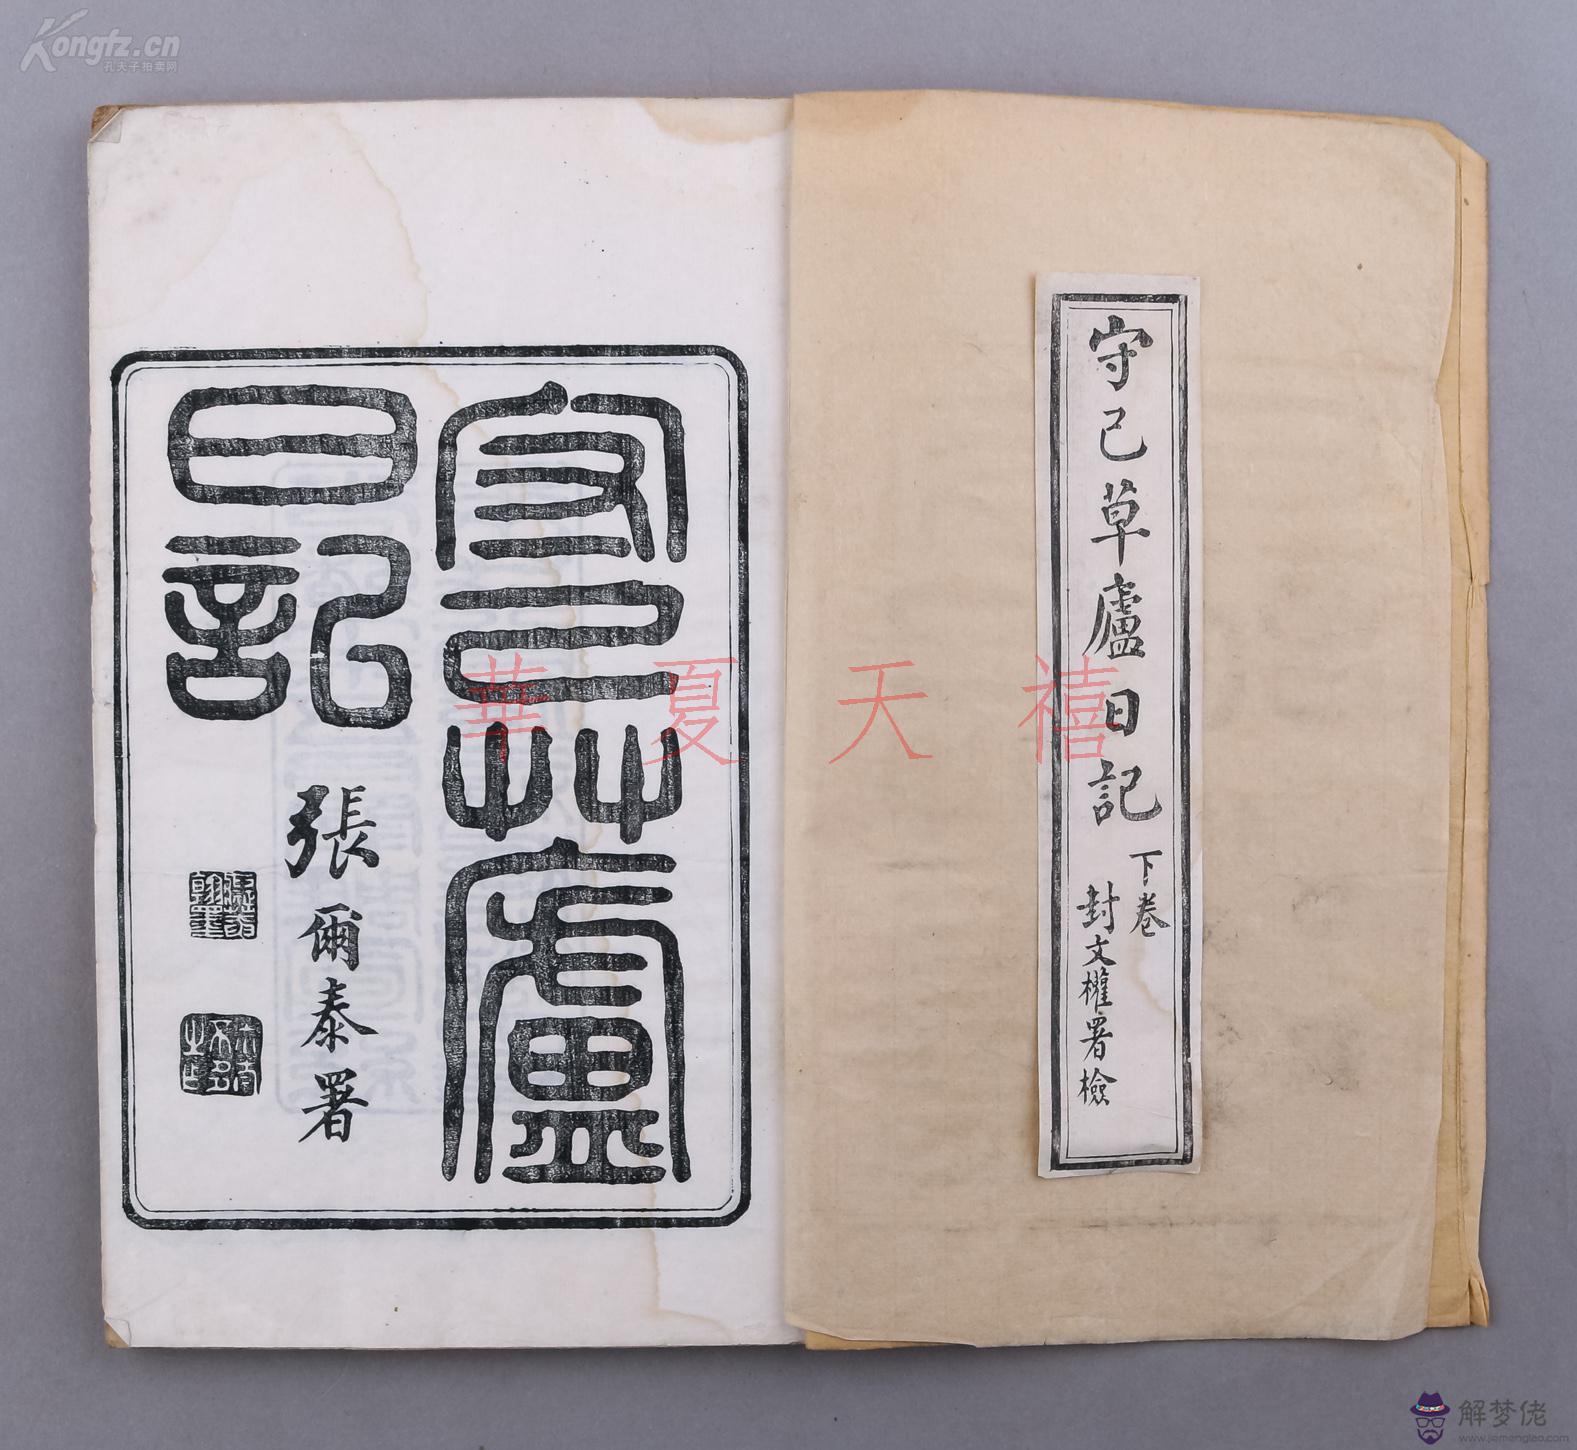 Kongfz.cn
孔夫子拍卖网
守己草廬日記
下卷
封文權署檢
守己艸廬
日記
張爾泰署
華夏天禧
解梦佬
www.jiemenglao.com